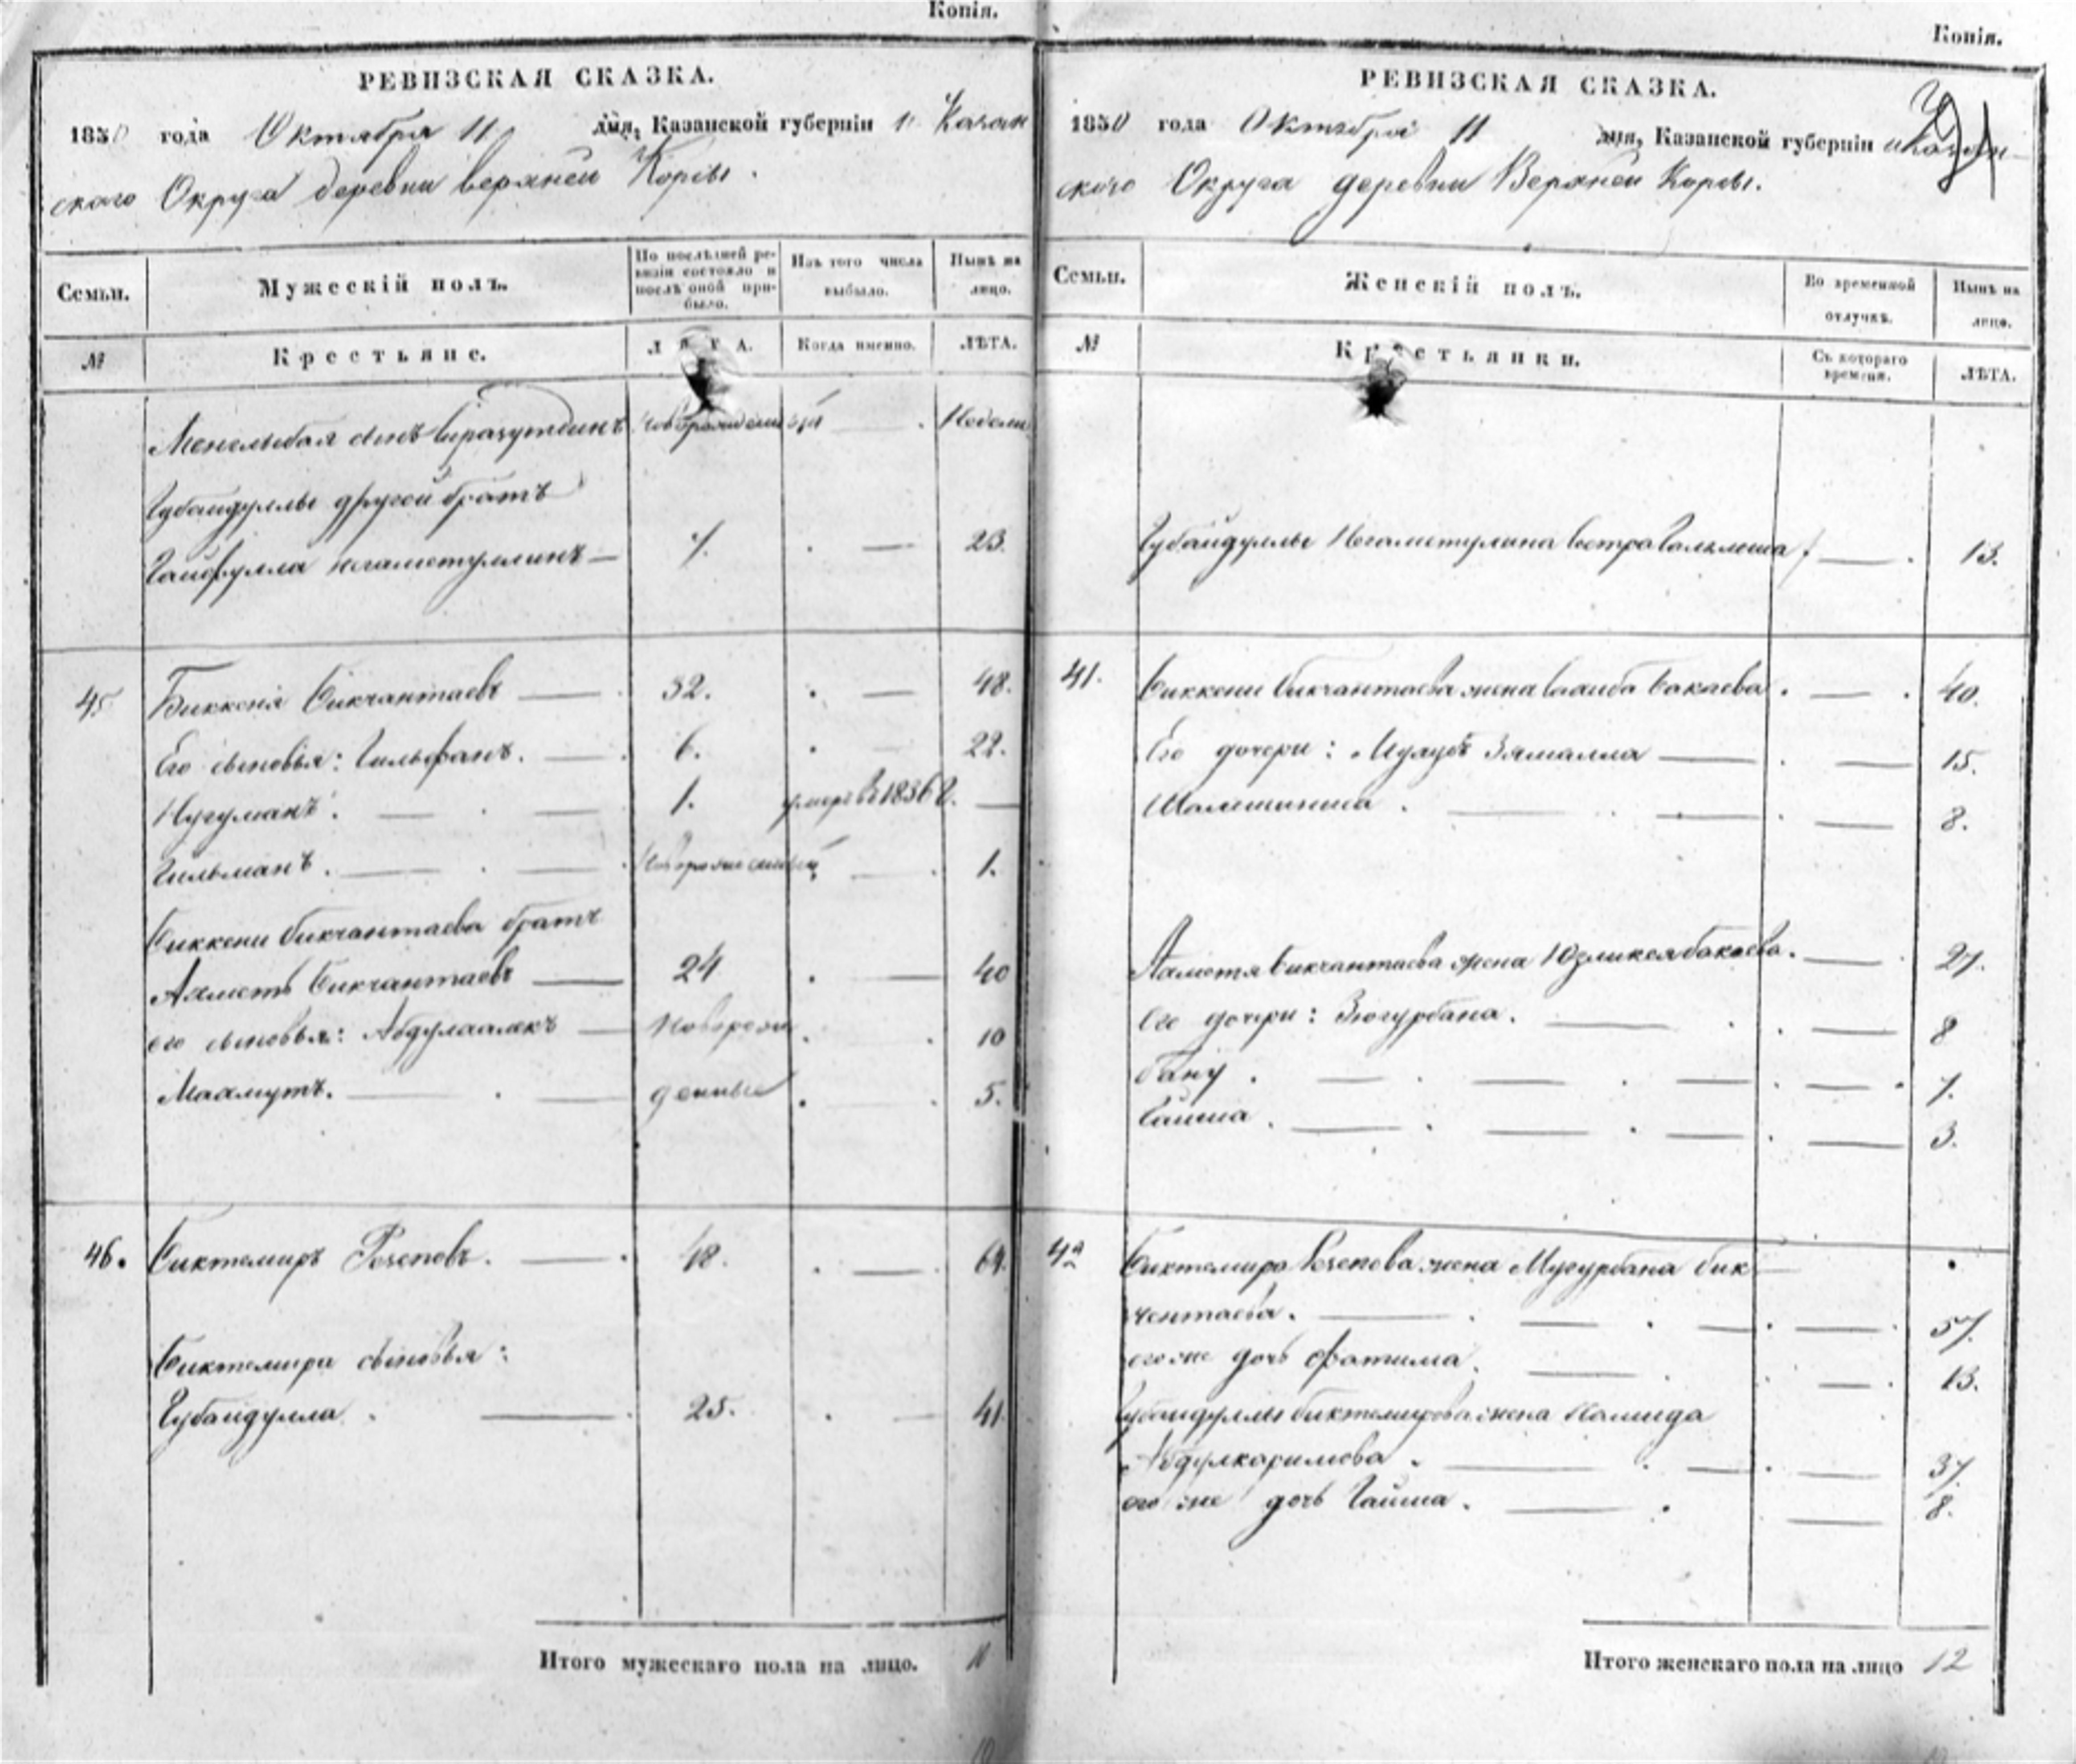 Копія.
РЕВИЗСКАЯ СКАЗКА.
1850 года Октября 11 дня, Казанской губерніи и Казан
скаго Округа деревни верхней Корсы.
Семьи.
Мужескій полъ.
По послѣдней ре-
визіи состояло и
послѣ оной при-
было.
Изъ того числа
выбыло.
Нынѣ на
лицо.
№
Крестьяне.
ЛѢТА.
Когда именно.
ЛѢТА.
сынъ новорожденный — . Недели
Губайдуллы другой братъ
7. . — 23.
45 Биккеня Бикчантаевъ — 32. . — 48.
Его сыновья: Гильфанъ. — 6. . — 22.
Нугуманъ. — . — 1. умеръ въ 1836 г. —
Гильманъ. — . — Новорожденный . — . 1.
Биккени Бикчантаева братъ
Ахметь Бикчантаевъ — 24 . — 40
его сыновья: — Новорож . . 10
Махмутъ. — . — денные . — . 5.
46. Биктемиръ Резеповъ. — . 48. . — . 64.
Биктемира сыновья:
Губайдулла . — . 25. . — 41.
Итого мужескаго пола на лицо. 11
Копія.
РЕВИЗСКАЯ СКАЗКА.
1850 года Октября 11 дня, Казанской губерніи и Казан-
скаго Округа деревни Верхней Корсы.
Семьи.
Женскій полъ.
Во временной
отлучкѣ.
Нынѣ на
лицо.
№
Крестьянки.
Съ котораго
времени.
ЛѢТА.
Губайдуллы сестра — . 13.
41. Биккени Бикчантаева жена Бакаева . — . 40.
Его дочери: Зямалла — . — 15.
. — . — . — 8.
Ахметя Бикчантаева жена Бакаева. — . 27.
Его дочери: Зюгурбана. — . . — 8
Бану . — . — . — . — . 7.
Гайша . — . — . — . — 3.
42 Биктемира Резепова жена Мугурбана бик — .
чентаева. — . — . — . — . 57.
его же дочь Фатима. — . . — . 13.
Губайдуллы биктемирова жена Хамида
Абдулкаримова . — . — . — 37.
его же дочь Гайша. — . — 8.
Итого женскаго пола на лицо 12